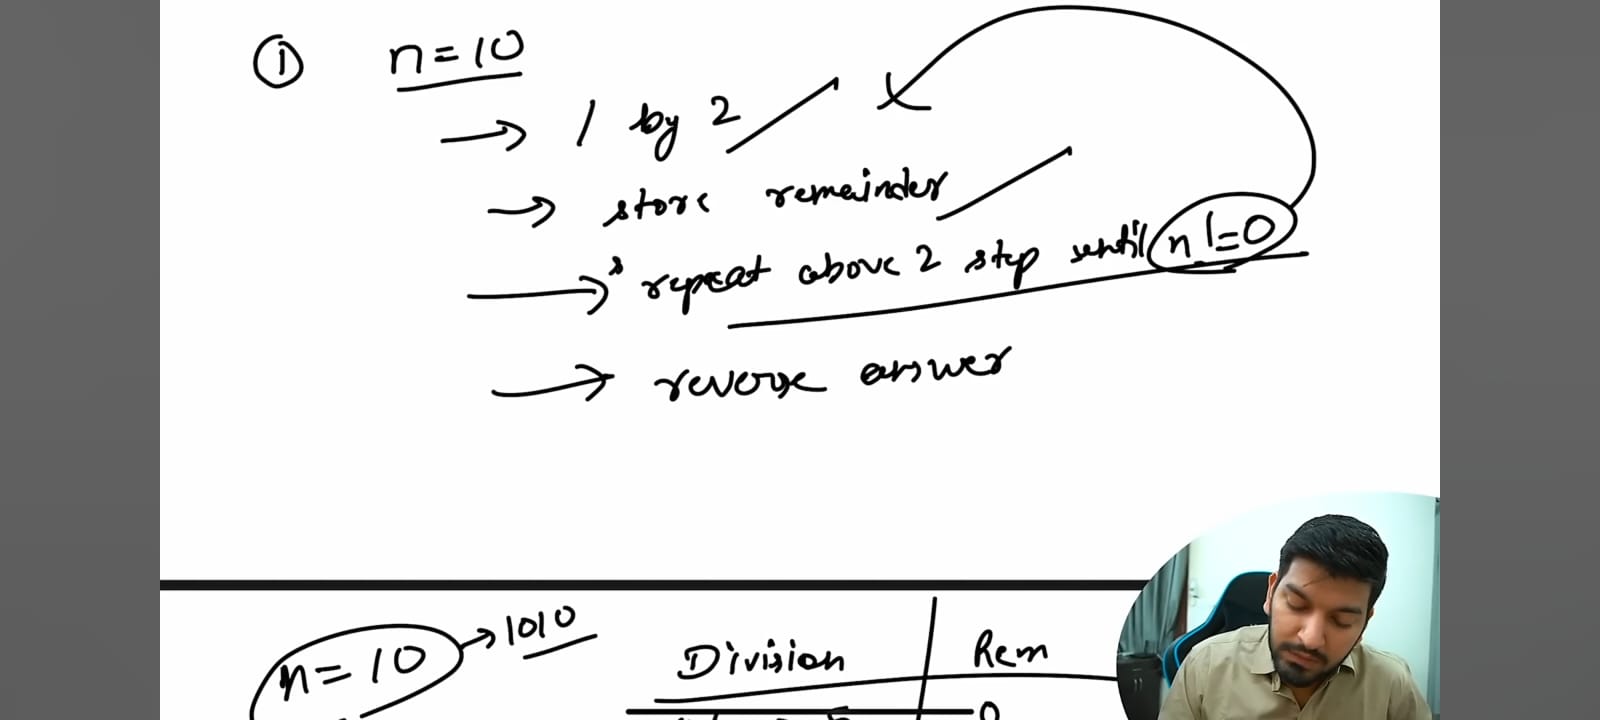 ① n=10
→ / by 2
→ store remainder
→ repeat above 2 step until n!=0
→ reverse answer
n=10 → 1010
Division Rem
0